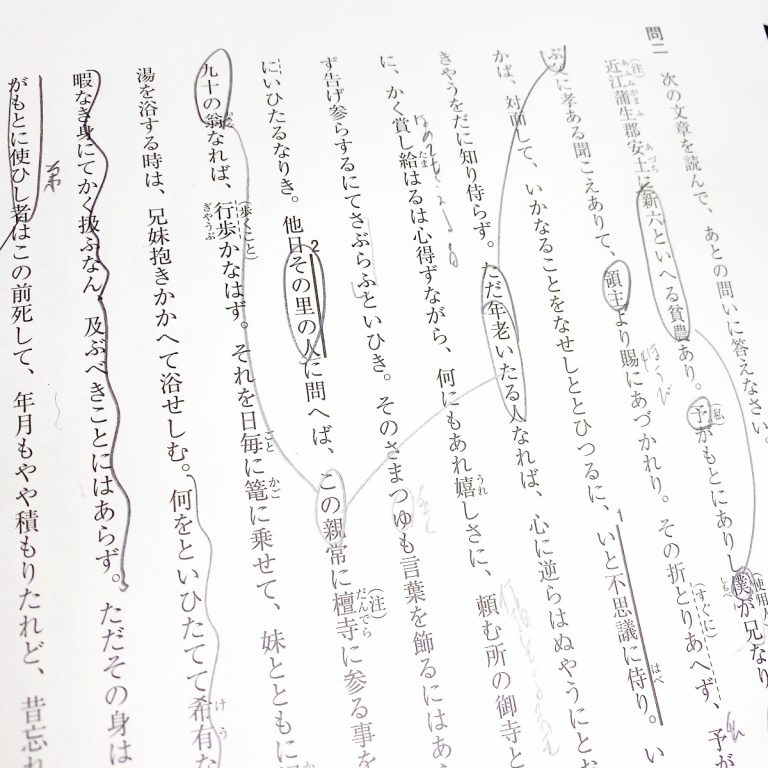 問二　次の文章を読んで、あとの問いに答えなさい。
(注)近江蒲生郡安土に新六といへる貧農あり。予(私)がもとにありし僕(使用人)が兄なり
父に孝ある聞こえありて、領主より賜にあづかれり。その折とりあへず(すぐに)、予が
かば、対面して、いかなることをなせしととひつるに、いと不思議に侍り。い
きやうをだに知り侍らず。ただ年老いたる人なれば、心に逆らはぬやうにとお
に、かく賞し給はるは心得ずながら、何にもあれ嬉しさに、頼む所の御寺と
ず告げ参らするにてさぶらふといひき。そのさまつゆも言葉を飾るにはあ
にいひたるなりき。他日その里の人に問へば、この親常に檀寺(注)に参る事を
九十の翁なれば、行歩(歩くこと)かなはず。それを日毎に篭に乗せて、妹とともに
湯を浴する時は、兄妹抱きかかへて浴せしむ。何をといひたてて希有な
暇なき身にてかく扱ふなん、及ぶべきことにはあらず。ただその身は
がもとに使ひし者はこの前死して、年月もやや積もりたれど、昔忘れ